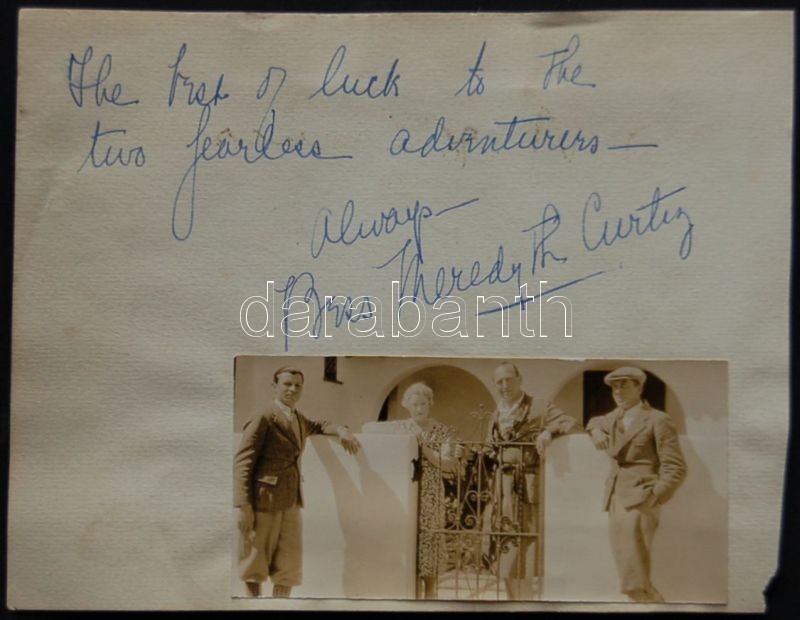 The best of luck to the
two fearless adventurers—
Always—
Bess Meredyth Curtiz
darabanth